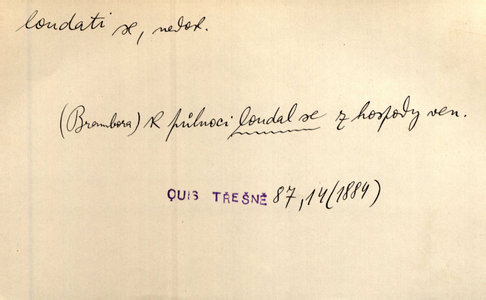 loudati se, nedok.
(Brambora) K půlnoci loudal se z hospody ven.
QUIS TŘEŠNĚ 87, 14 (1884)